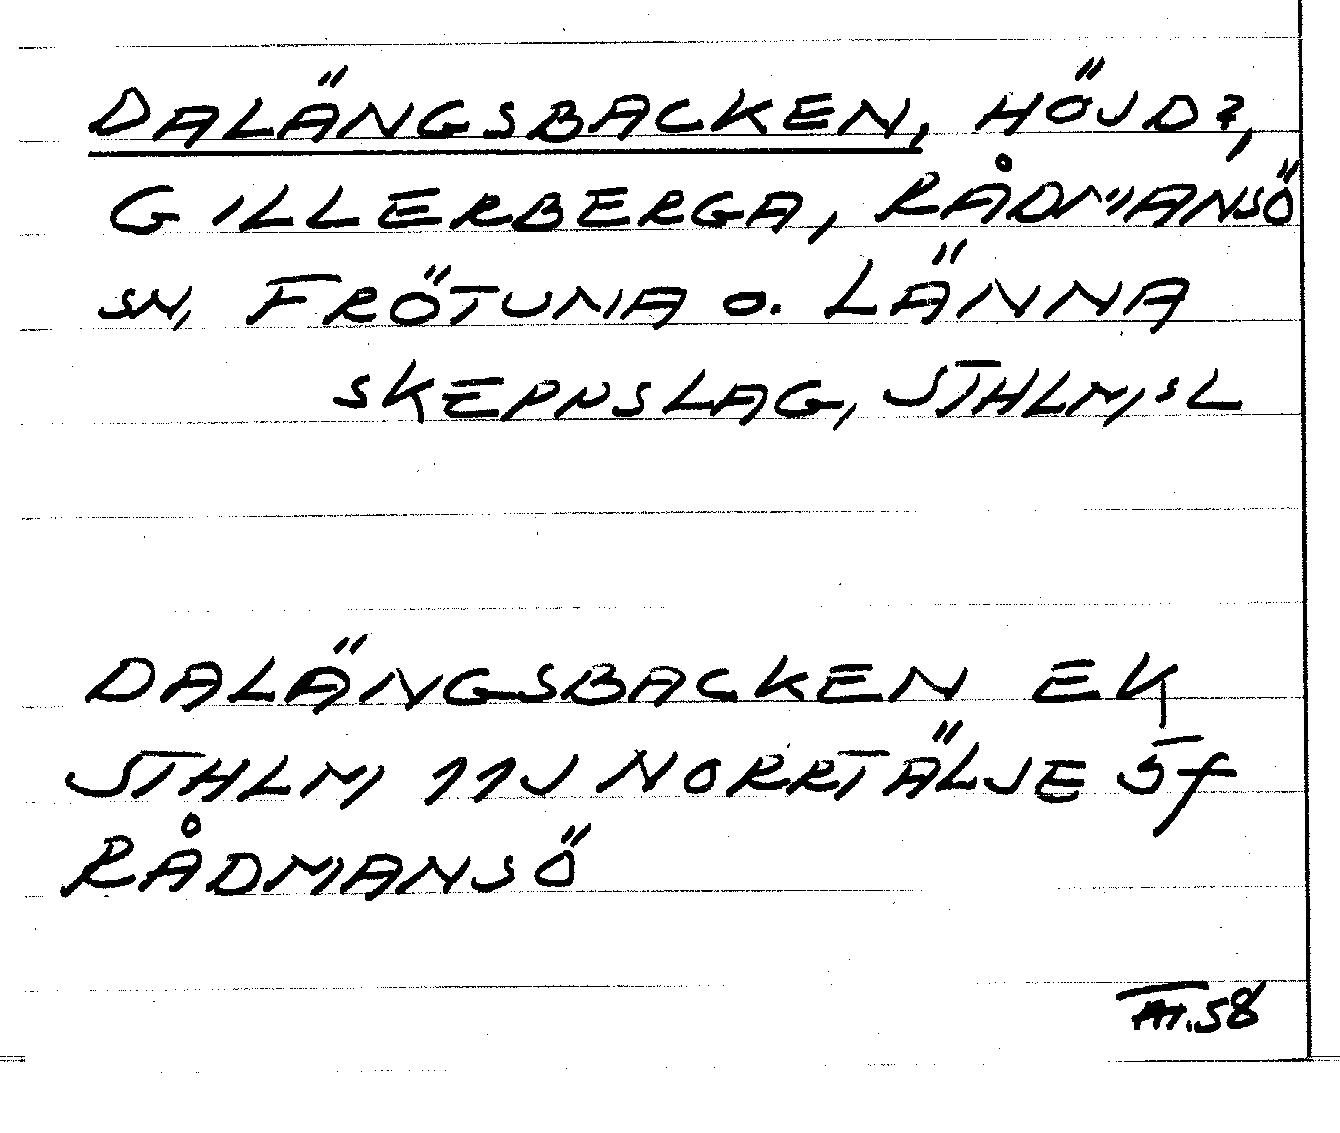 DALÄNGSBACKEN, HÖJD?,
GILLERBERGA, RÅDMANSÖ
SN, FRÖTUNA O. LÄNNA
SKEPPSLAG, STHLM,SL
DALÄNGSBACKEN EK
STHLM 11J NORRTÄLJE 5f
RÅDMANSÖ
58